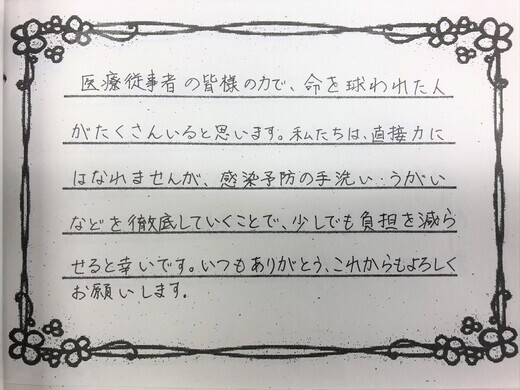 医療従事者の皆様の力で、命を球われた人
がたくさんいると思います。私たちは、直接力に
はなれませんが、感染予防の手洗い・うがい
などを徹底していくことで、少しでも負担を減ら
せると幸いです。いつもありがとう、これからもよろしく
お願いします。